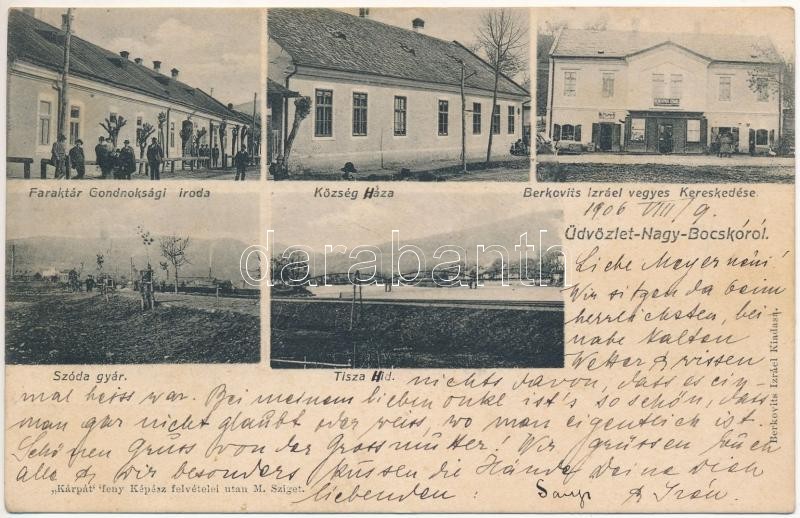 Faraktár Gondnoksági iroda
Község Háza
Berkovits Izráel vegyes Kereskedése.
1906 VIII/9.
Üdvözlet-Nagy-Bocskóról.
darabanth.com
Szóda gyár.
Tisza Híd.
Liebe Meyer néni!
Wir sitzen da beim
herrlichsten, bei-
nahe kalten
Wetter & wissen
nichts davon, dass es ein-
mal heiss war. Bei meinem lieben Onkel ist's so schön, dass
man gar nicht glaubt oder weiss, wo man eigentlich ist.
Schönen Gruss von der Grossmutter! Wir grüssen Euch
alle & wir besonders küssen die Hände deine Dich
liebenden:
& Irén.
Berkovits Izráel Kiadása.
„Kárpát" feny Képész felvételei utan M. Sziget.